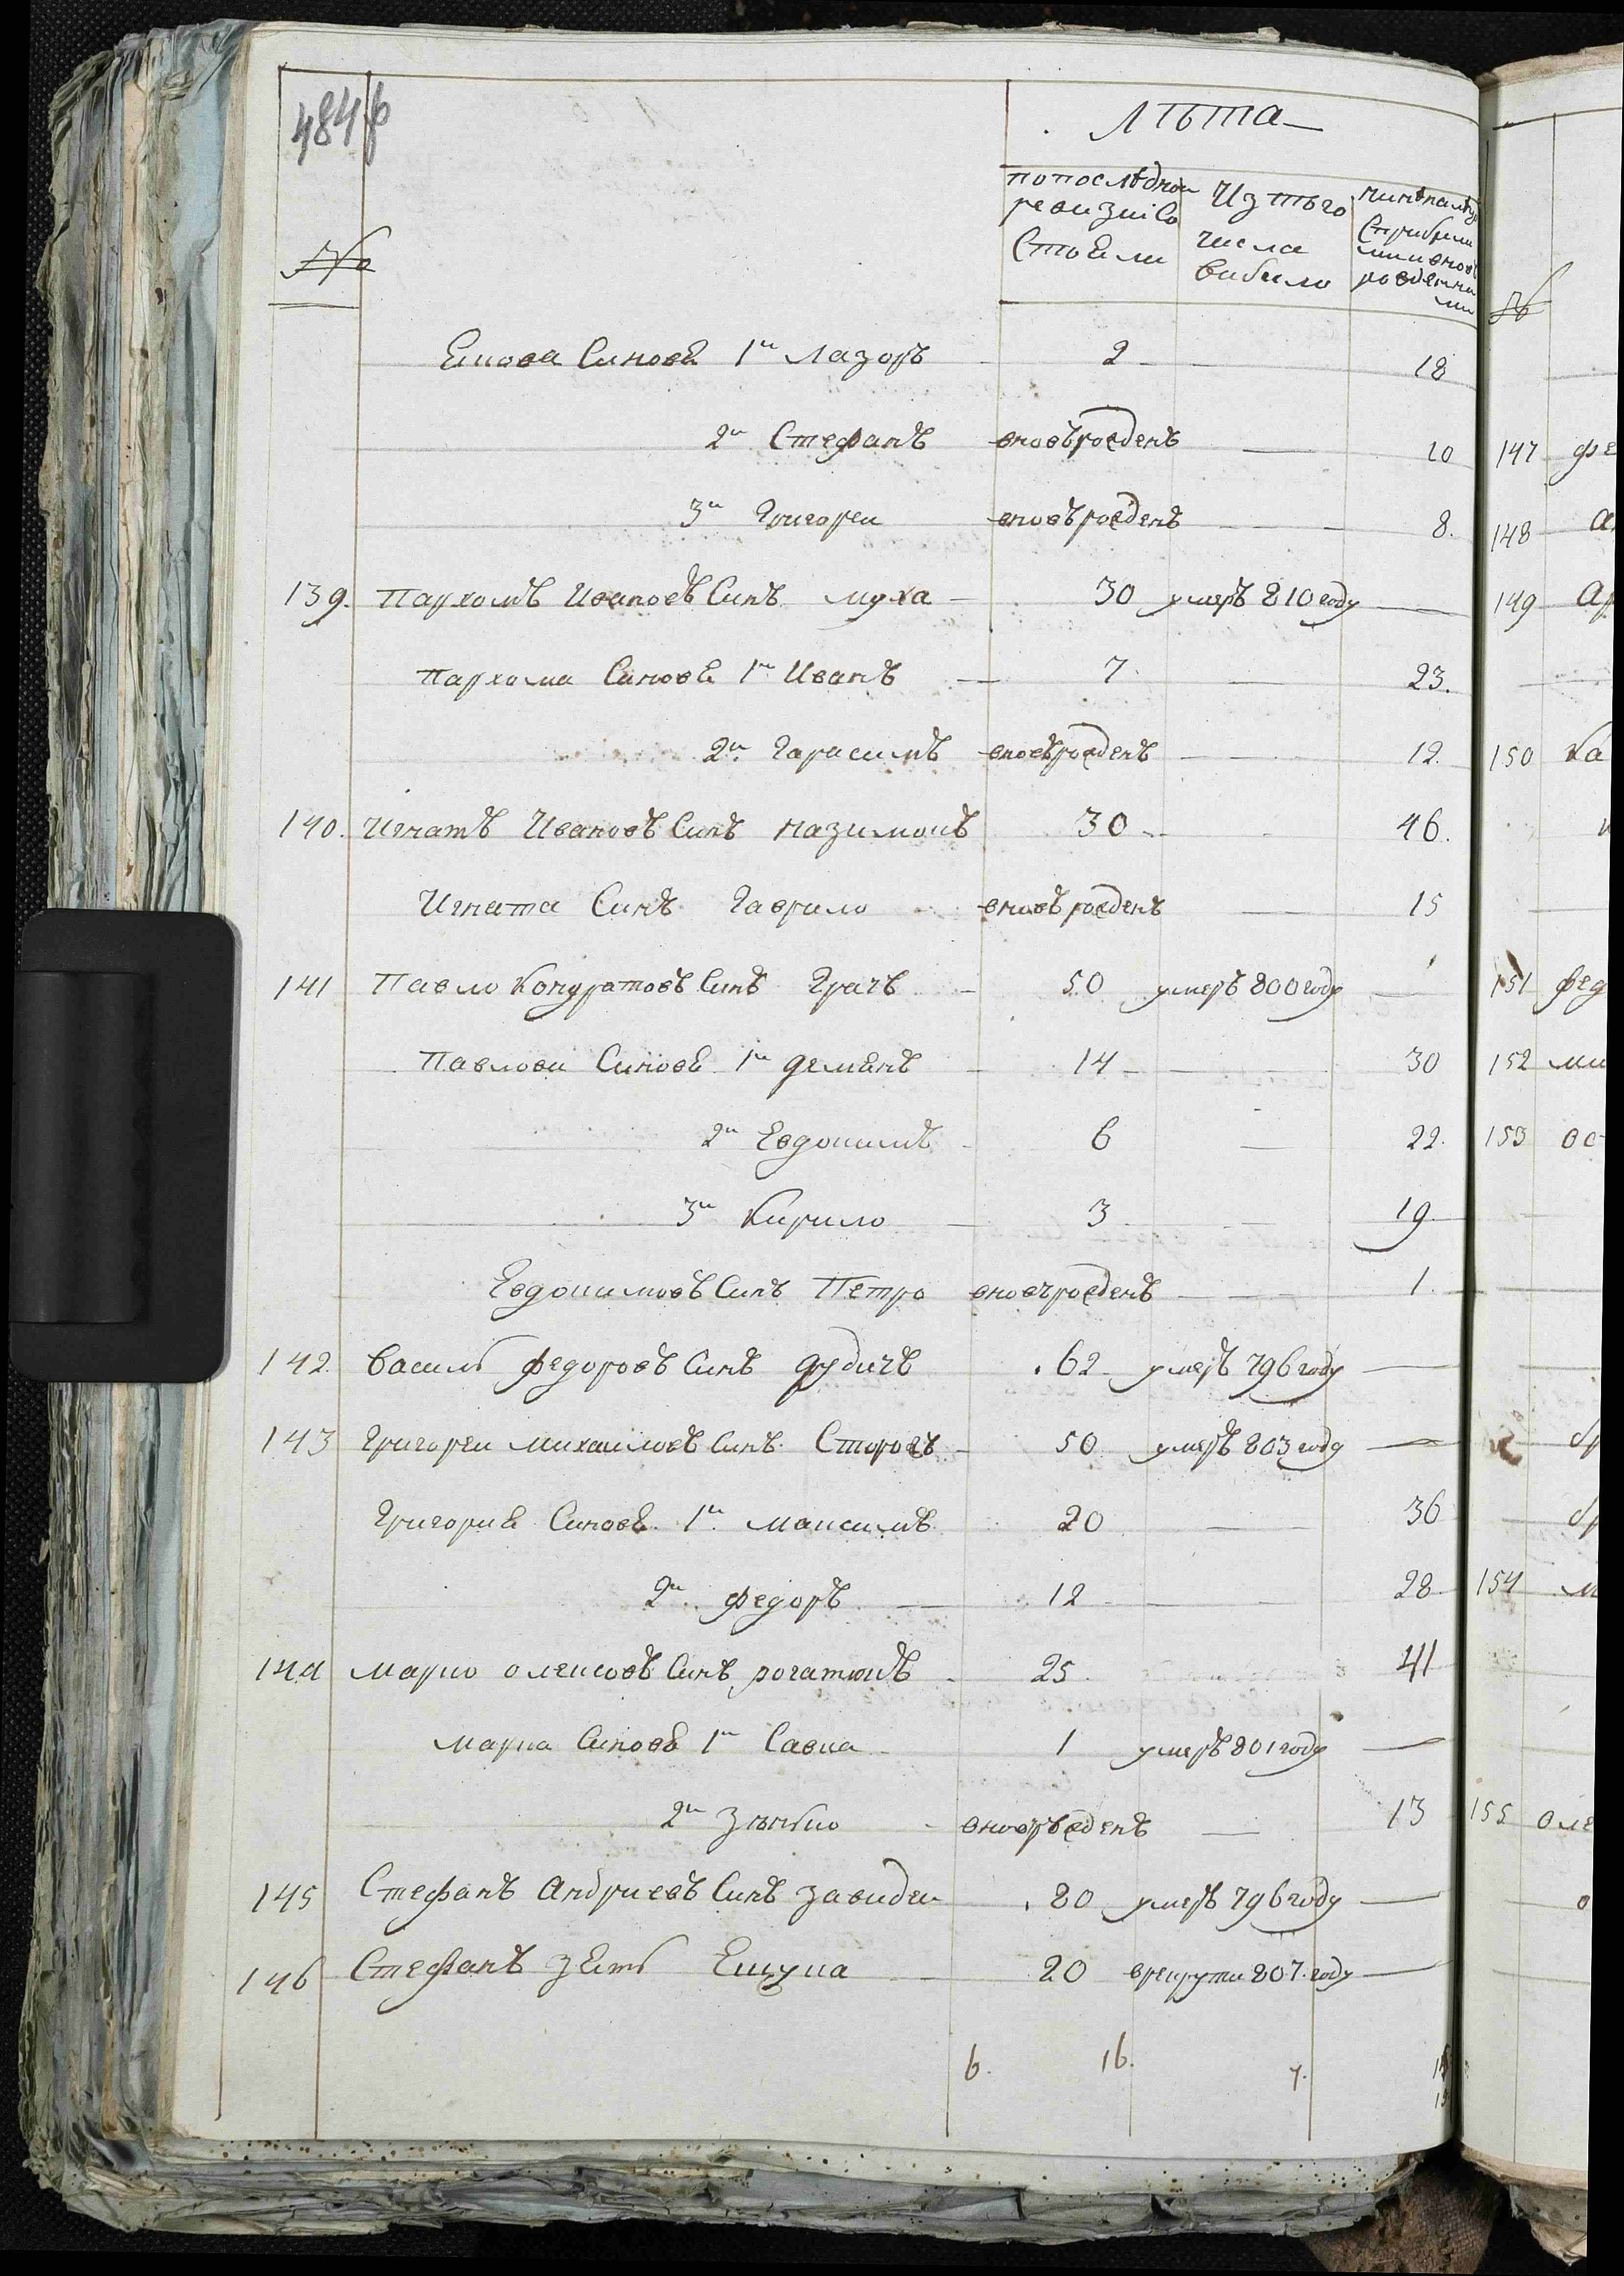 484
№
Лѣта
попослѣднои
ревизиi Со
Стоѣли
Изтого
числа
вибило
нинѣналицо
Сприбули
миивнов
рожденни
ми
Синовѣ 1й Лазоръ 2 18
2й Стефанъ вновърожденъ 10
3й Григореи вновърожденъ 8.
139. Пархомъ Ивановъ Синъ муха 30 умеръ 810 году
Пархома Синовѣ 1й Иванъ 7 23.
2й Гарасимъ вновърожденъ 12.
140. Игнатъ Ивановъ Синъ назимокъ 30 46.
Игната Синъ Гаврило вновърожденъ 15
141 Павло Кондратовъ Синъ Грачъ 50 умеръ 800 году
Павлови Синовѣ 1й демѣнъ 14 30
2й Евдокимъ 6 22.
3й Кирило 3 19
Евдокимовъ Синъ Петро вновърожденъ 1.
142. василь федоровъ Синъ дудичъ 62 умеръ 796 году
143 Григореи михаиловъ Синъ Сторожъ 50 умеръ 803 году
Григориѣ Синовѣ 1й максимъ 20 36
2й федоръ 12 28
144 марко олексовъ Синъ рогатюкъ 25 41
марка Синовѣ 1й Савка 1 умеръ 801 году
2й Зѣнько вновърожденъ 13
145 Стефанъ Андриевъ Синъ завидеи 80 умеръ 796 году
146 Стефанъ зѣть Ещука 20 врекрути 807. году
6. 16. 7.
№
147
148
149
150
151
152
153
154
155